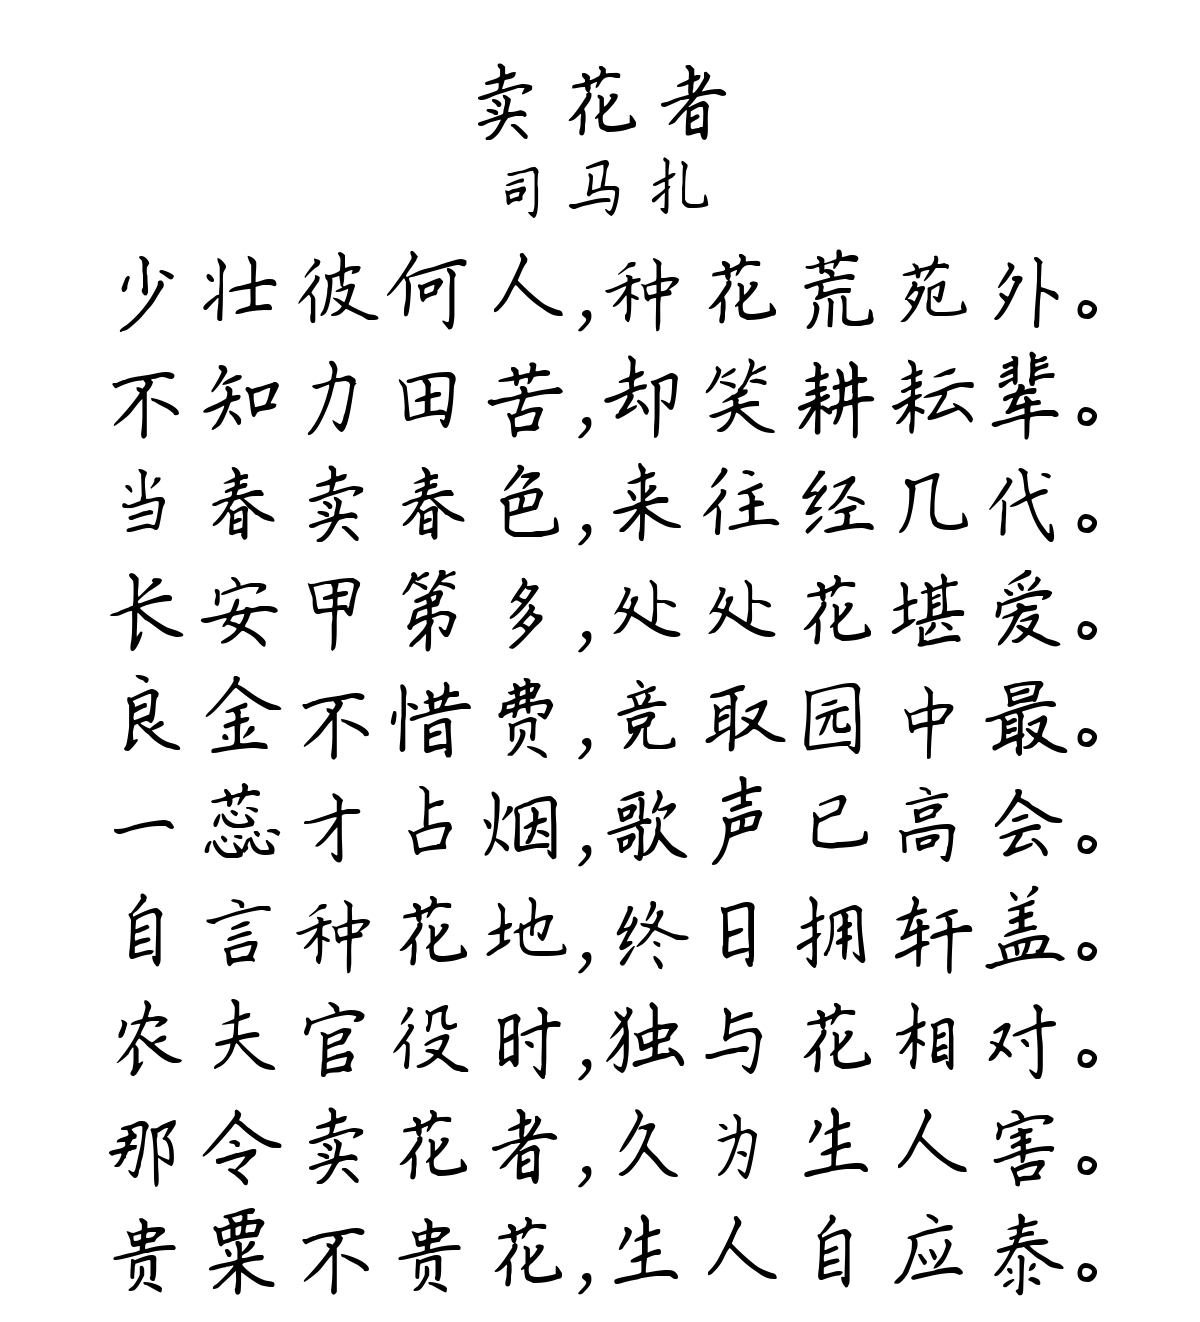 卖花者
司马扎
少壮彼何人,种花荒苑外。
不知力田苦,却笑耕耘辈。
当春卖春色,来往经几代。
长安甲第多,处处花堪爱。
良金不惜费,竞取园中最。
一蕊才占烟,歌声已高会。
自言种花地,终日拥轩盖。
农夫官役时,独与花相对。
那令卖花者,久为生人害。
贵粟不贵花,生人自应泰。